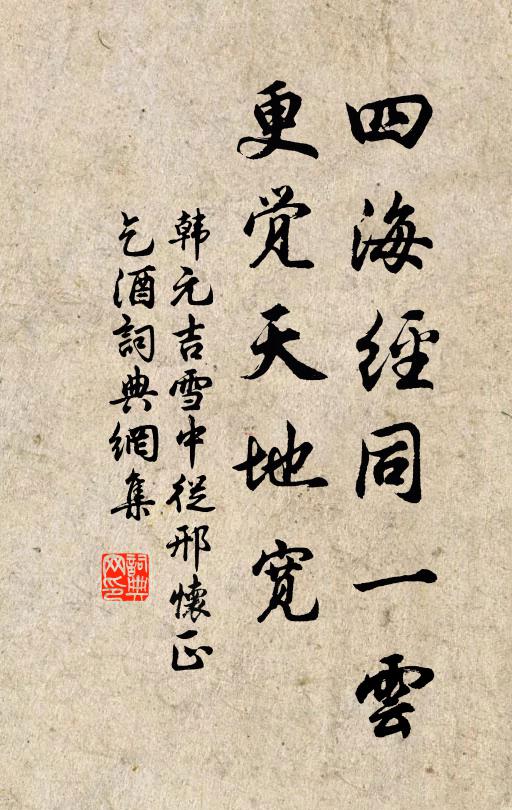 四海經同一雲
更觉天地宽
韩元吉雪中從邢懷正
乞酒詞典網集
詞典
网印